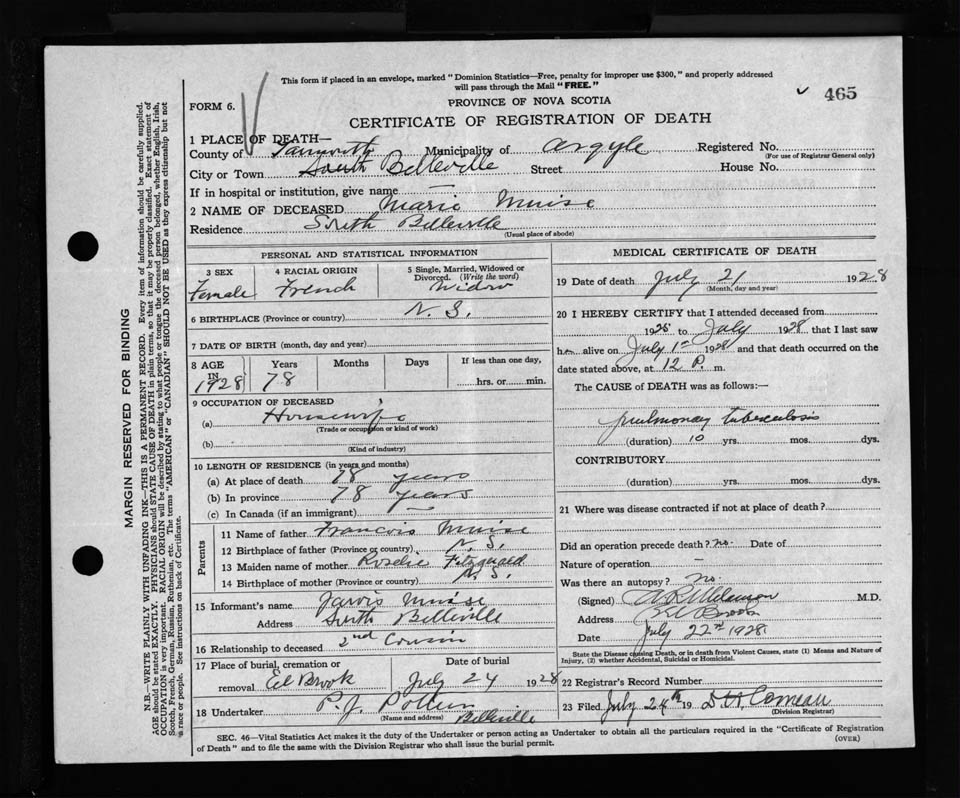 This form if placed in an envelope, marked "Dominion Statistics—Free, penalty for improper use $300," and properly addressed
will pass through the Mail "FREE."
FORM 6.
PROVINCE OF NOVA SCOTIA
465
CERTIFICATE OF REGISTRATION OF DEATH
1 PLACE OF DEATH—
County of Yarmouth Municipality of Argyle Registered No.
(For use of Registrar General only)
City or Town South Belleville Street House No.
If in hospital or institution, give name —
2 NAME OF DECEASED Marie Muise
Residence South Belleville
(Usual place of abode)
PERSONAL AND STATISTICAL INFORMATION
3 SEX 4 RACIAL ORIGIN 5 Single, Married, Widowed or
Divorced. (Write the word)
Female French Widow
6 BIRTHPLACE (Province or country) N. S.
7 DATE OF BIRTH (month, day and year)
8 AGE IN 1928 Years 78 Months Days If less than one day,
hrs. or min.
9 OCCUPATION OF DECEASED
(a) Housewife
(Trade or occupation or kind of work)
(b)
(Kind of industry)
10 LENGTH OF RESIDENCE (in years and months)
(a) At place of death 78 years
(b) In province 78 years
(c) In Canada (if an immigrant) —
Parents
11 Name of father Francois Muise
12 Birthplace of father (Province or country) N. S.
13 Maiden name of mother Rosalie Fitzgerald
14 Birthplace of mother (Province or country) N. S.
15 Informant's name Jarvis Muise
Address South Belleville
16 Relationship to deceased 2nd Cousin
17 Place of burial, cremation or Date of burial
removal Eel Brook July 24 1928
18 Undertaker P. J. Pottier
(Name and address) Belleville
MEDICAL CERTIFICATE OF DEATH
19 Date of death July 21 1928
(Month, day and year)
20 I HEREBY CERTIFY that I attended deceased from
1925 to July 1928 that I last saw
her alive on July 1st 1928 and that death occurred on the
date stated above, at 12 P. m.
The CAUSE of DEATH was as follows:—
pulmonary tuberculosis
(duration) 10 yrs. mos. dys.
CONTRIBUTORY
(duration) yrs. mos. dys.
21 Where was disease contracted if not at place of death?
Did an operation precede death? no. Date of
Nature of operation
Was there an autopsy? no.
(Signed) M.D.
Address Eel Brook
Date July 22nd 1928
State the Disease causing Death, or in death from Violent Causes, state (1) Means and Nature of
Injury, (2) whether Accidental, Suicidal or Homicidal.
22 Registrar's Record Number
23 Filed July 24th 19 Comeau
(Division Registrar)
SEC. 46—Vital Statistics Act makes it the duty of the Undertaker or person acting as Undertaker to obtain all the particulars required in the "Certificate of Registration
of Death" and to file the same with the Division Registrar who shall issue the burial permit.
(OVER)
MARGIN RESERVED FOR BINDING
N.B.—WRITE PLAINLY, WITH UNFADING INK—THIS IS A PERMANENT RECORD. Every item of information should be carefully supplied.
AGE should be stated EXACTLY. PHYSICIANS should STATE CAUSE OF DEATH in plain terms, so that it may be properly classified. Exact statement of
OCCUPATION is very important. RACIAL ORIGIN will be described by stating to what people or tongue the deceased person belonged, whether English, Irish,
Scotch, French, German, Russian, Ruthenian, etc. The terms "AMERICAN" or "CANADIAN" SHOULD NOT BE USED as they express citizenship but not
a race or people. See instructions on back of Certificate.